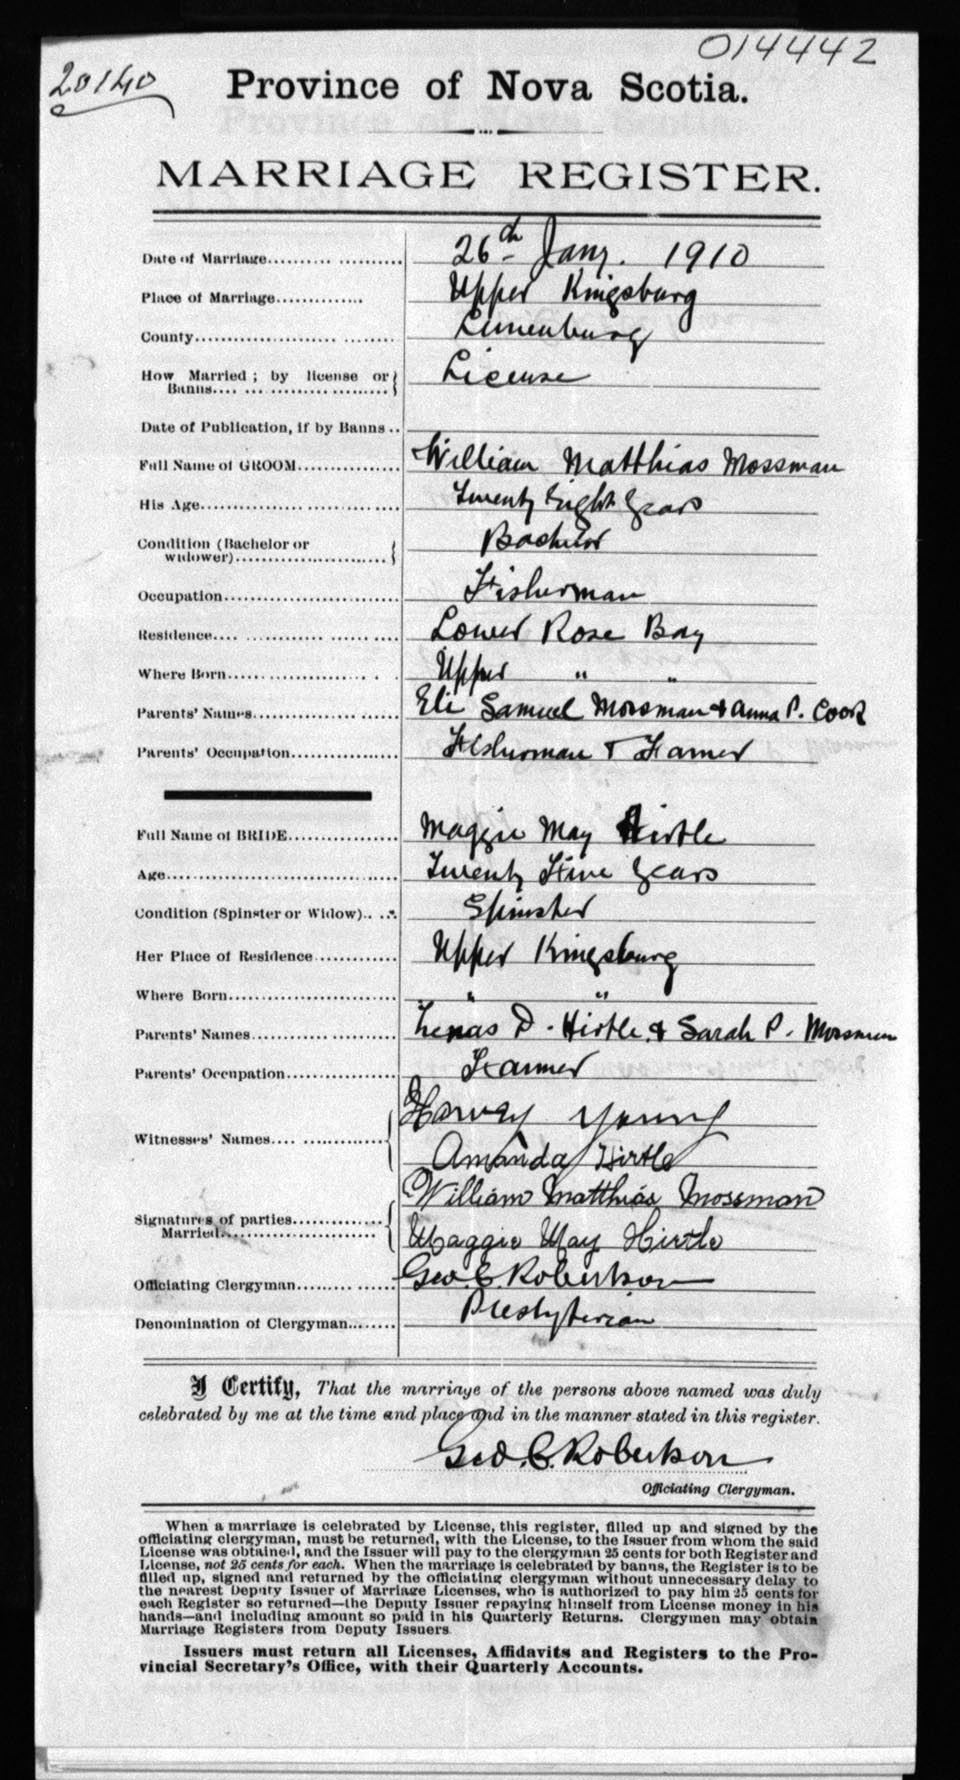 014442
20140
Province of Nova Scotia.
MARRIAGE REGISTER.
Date of Marriage.................... 26th Jany. 1910
Place of Marriage............. Upper Kingsburg
County............................... Lunenburg
How Married; by license or
Banns........................... License
Date of Publication, if by Banns ..
Full Name of GROOM............... William Matthias Mossman
His Age............................. Twenty Eight Years
Condition (Bachelor or
widower)....................... Bachelor
Occupation.......................... Fisherman
Residence.... ............ ...... ... Lower Rose Bay
Where Born........................ Upper " "
Parents' Names.................... Eli Samuel Mossman & Anna P. Cook
Parents' Occupation................ Fisherman & Farmer
Full Name of BRIDE................ Maggie May Hirtle
Age................................... Twenty Five Years
Condition (Spinster or Widow).. ... Spinster
Her Place of Residence............. Upper Kingsburg
Where Born......................... " "
Parents' Names..................... D. Hirtle & Sarah P. Mossman
Parents' Occupation................ Farmer
Harvey Young
Witnesses' Names.... ..............
Amanda Hirtle
William Matthias Mossman
Signatures of parties...............
Married..........................
Maggie May Hirtle
Officiating Clergyman............... Geo. C. Robertson
Denomination of Clergyman........ Presbyterian
I Certify, That the marriage of the persons above named was duly
celebrated by me at the time and place and in the manner stated in this register.
Geo. C. Robertson
Officiating Clergyman.
When a marriage is celebrated by License, this register, filled up and signed by the
officiating clergyman, must be returned, with the License, to the Issuer from whom the said
License was obtained, and the Issuer will pay to the clergyman 25 cents for both Register and
License, not 25 cents for each. When the marriage is celebrated by banns, the Register is to be
filled up, signed and returned by the officiating clergyman without unnecessary delay to
the nearest Deputy Issuer of Marriage Licenses, who is authorized to pay him 25 cents for
each Register so returned—the Deputy Issuer repaying himself from License money in his
hands—and including amount so paid in his Quarterly Returns. Clergymen may obtain
Marriage Registers from Deputy Issuers
Issuers must return all Licenses, Affidavits and Registers to the Pro-
vincial Secretary's Office, with their Quarterly Accounts.